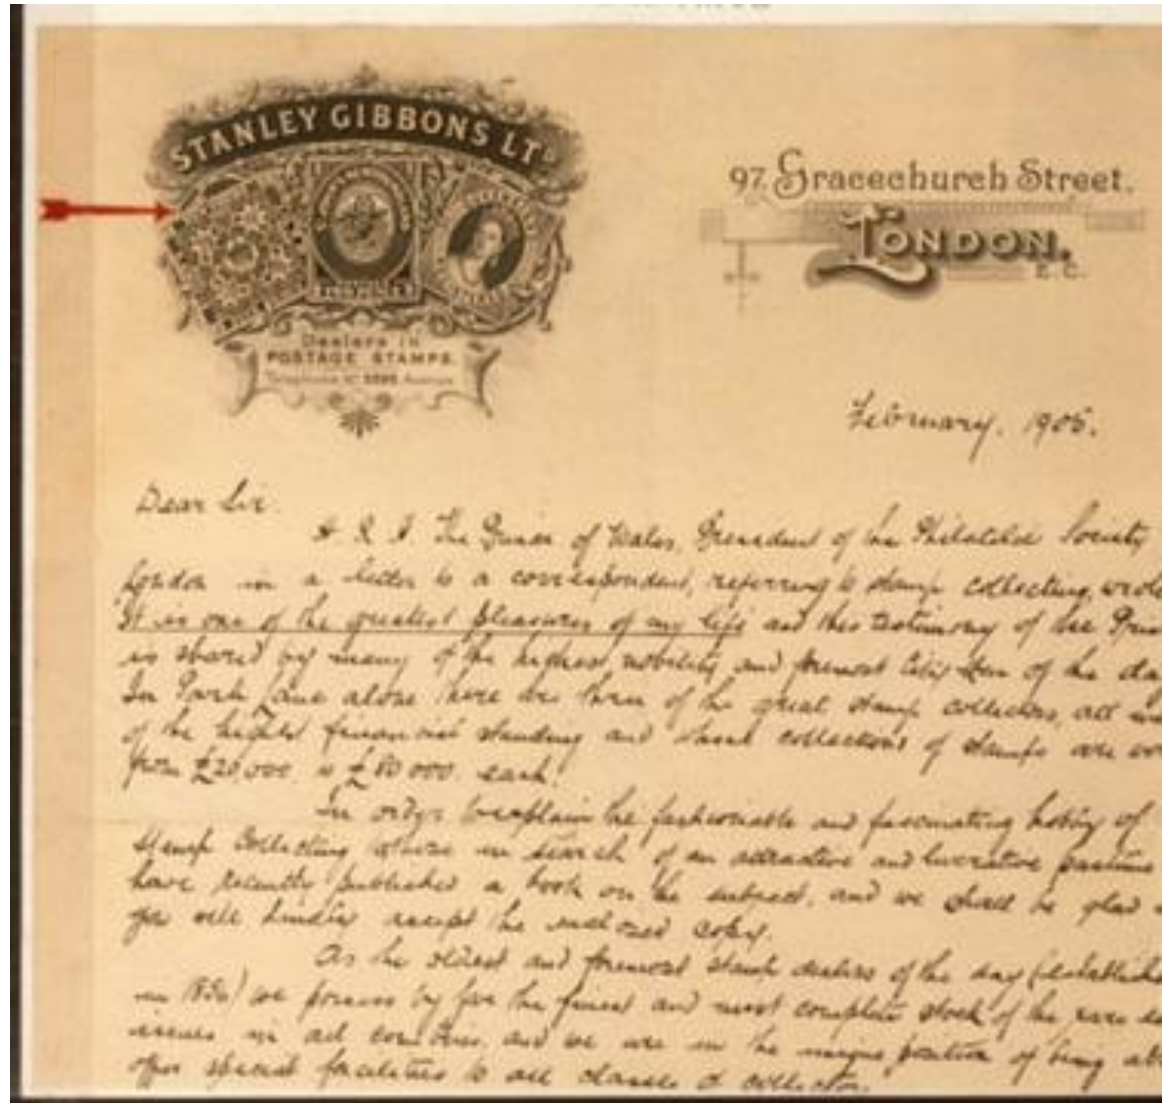 STANLEY GIBBONS LTD
Dealers in
POSTAGE STAMPS.
Telephone Nº Avenue
97, Gracechurch Street.
LONDON.
E.C.
February, 1905.
Dear Sir.
H R H The Prince of Wales, President of the Philatelic Society
London in a letter to a correspondent, referring to stamp collecting, wrote
It is one of the greatest pleasures of my life and this testimony of the
is shared by many of the highest nobility, and foremost City Men of the day
In Park Lane alone there are three of the great stamp collectors, all
of the highest financial standing and whose collections of stamps are
from £20,000 to £80,000 each!
In order to explain the fashionable and fascinating hobby of
Stamp Collecting to those in search of an attractive and lucrative pastime
have recently published a book on the subject, and we shall be glad
you will kindly accept the enclosed copy.
As the oldest and foremost stamp dealers of the day (established
in 1856) we possess by far the finest and most complete stock of the rare
issues in all countries, and we are in the unique position of being
offer special facilities to all classes of collector.